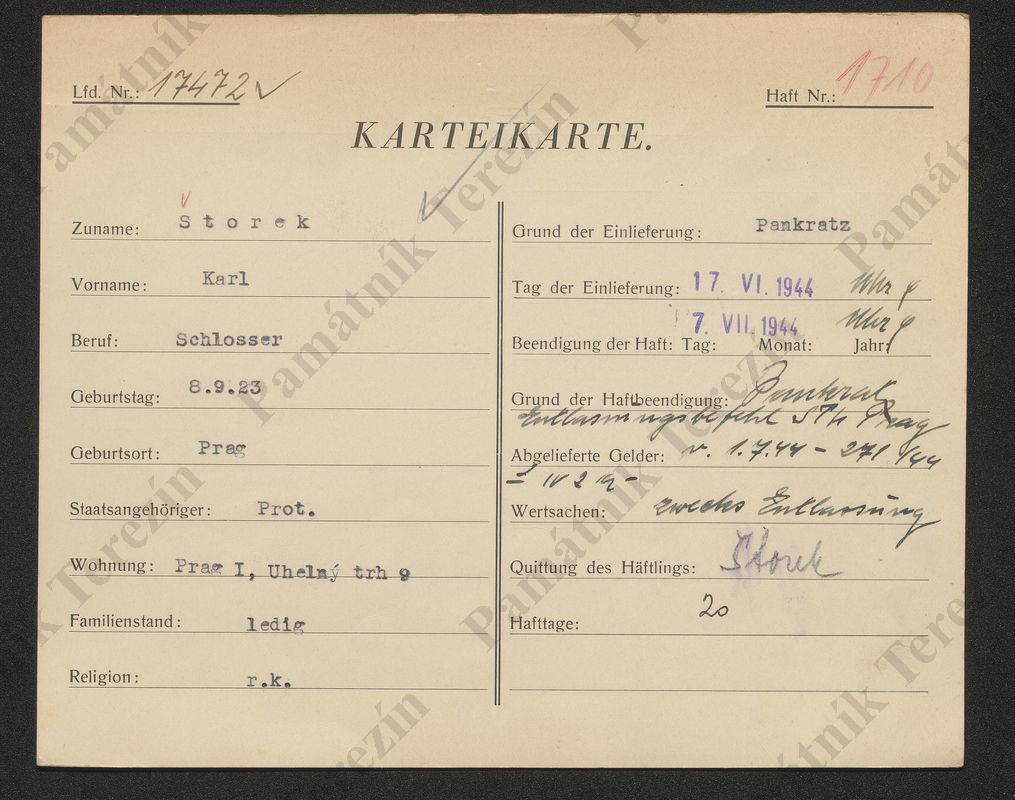 Lfd. Nr.: 17472
Haft Nr.: 1710
KARTEIKARTE.
Zuname: Štorek
Vorname: Karl
Beruf: Schlosser
Geburtstag: 8.9.23
Geburtsort: Prag
Staatsangehöriger: Prot.
Wohnung: Prag I, Uhelný trh 9
Familienstand: ledig
Religion: r.k.
Grund der Einlieferung: Pankratz
Tag der Einlieferung: 17. VI. 1944 Uhr
7. VII. 1944 Uhr
Beendigung der Haft: Tag: Monat: Jahr:
Grund der Haftbeendigung: Pankrat
Entlassungsbefehl Prag
Abgelieferte Gelder: v. 1.7.44 - 271/44
- IV 2
Wertsachen: zwecks Entlassung
Quittung des Häftlings: Štorek
Hafttage: 20
Památník Terezín
Památník Terezín
Památník Terezín
Památník Terezín